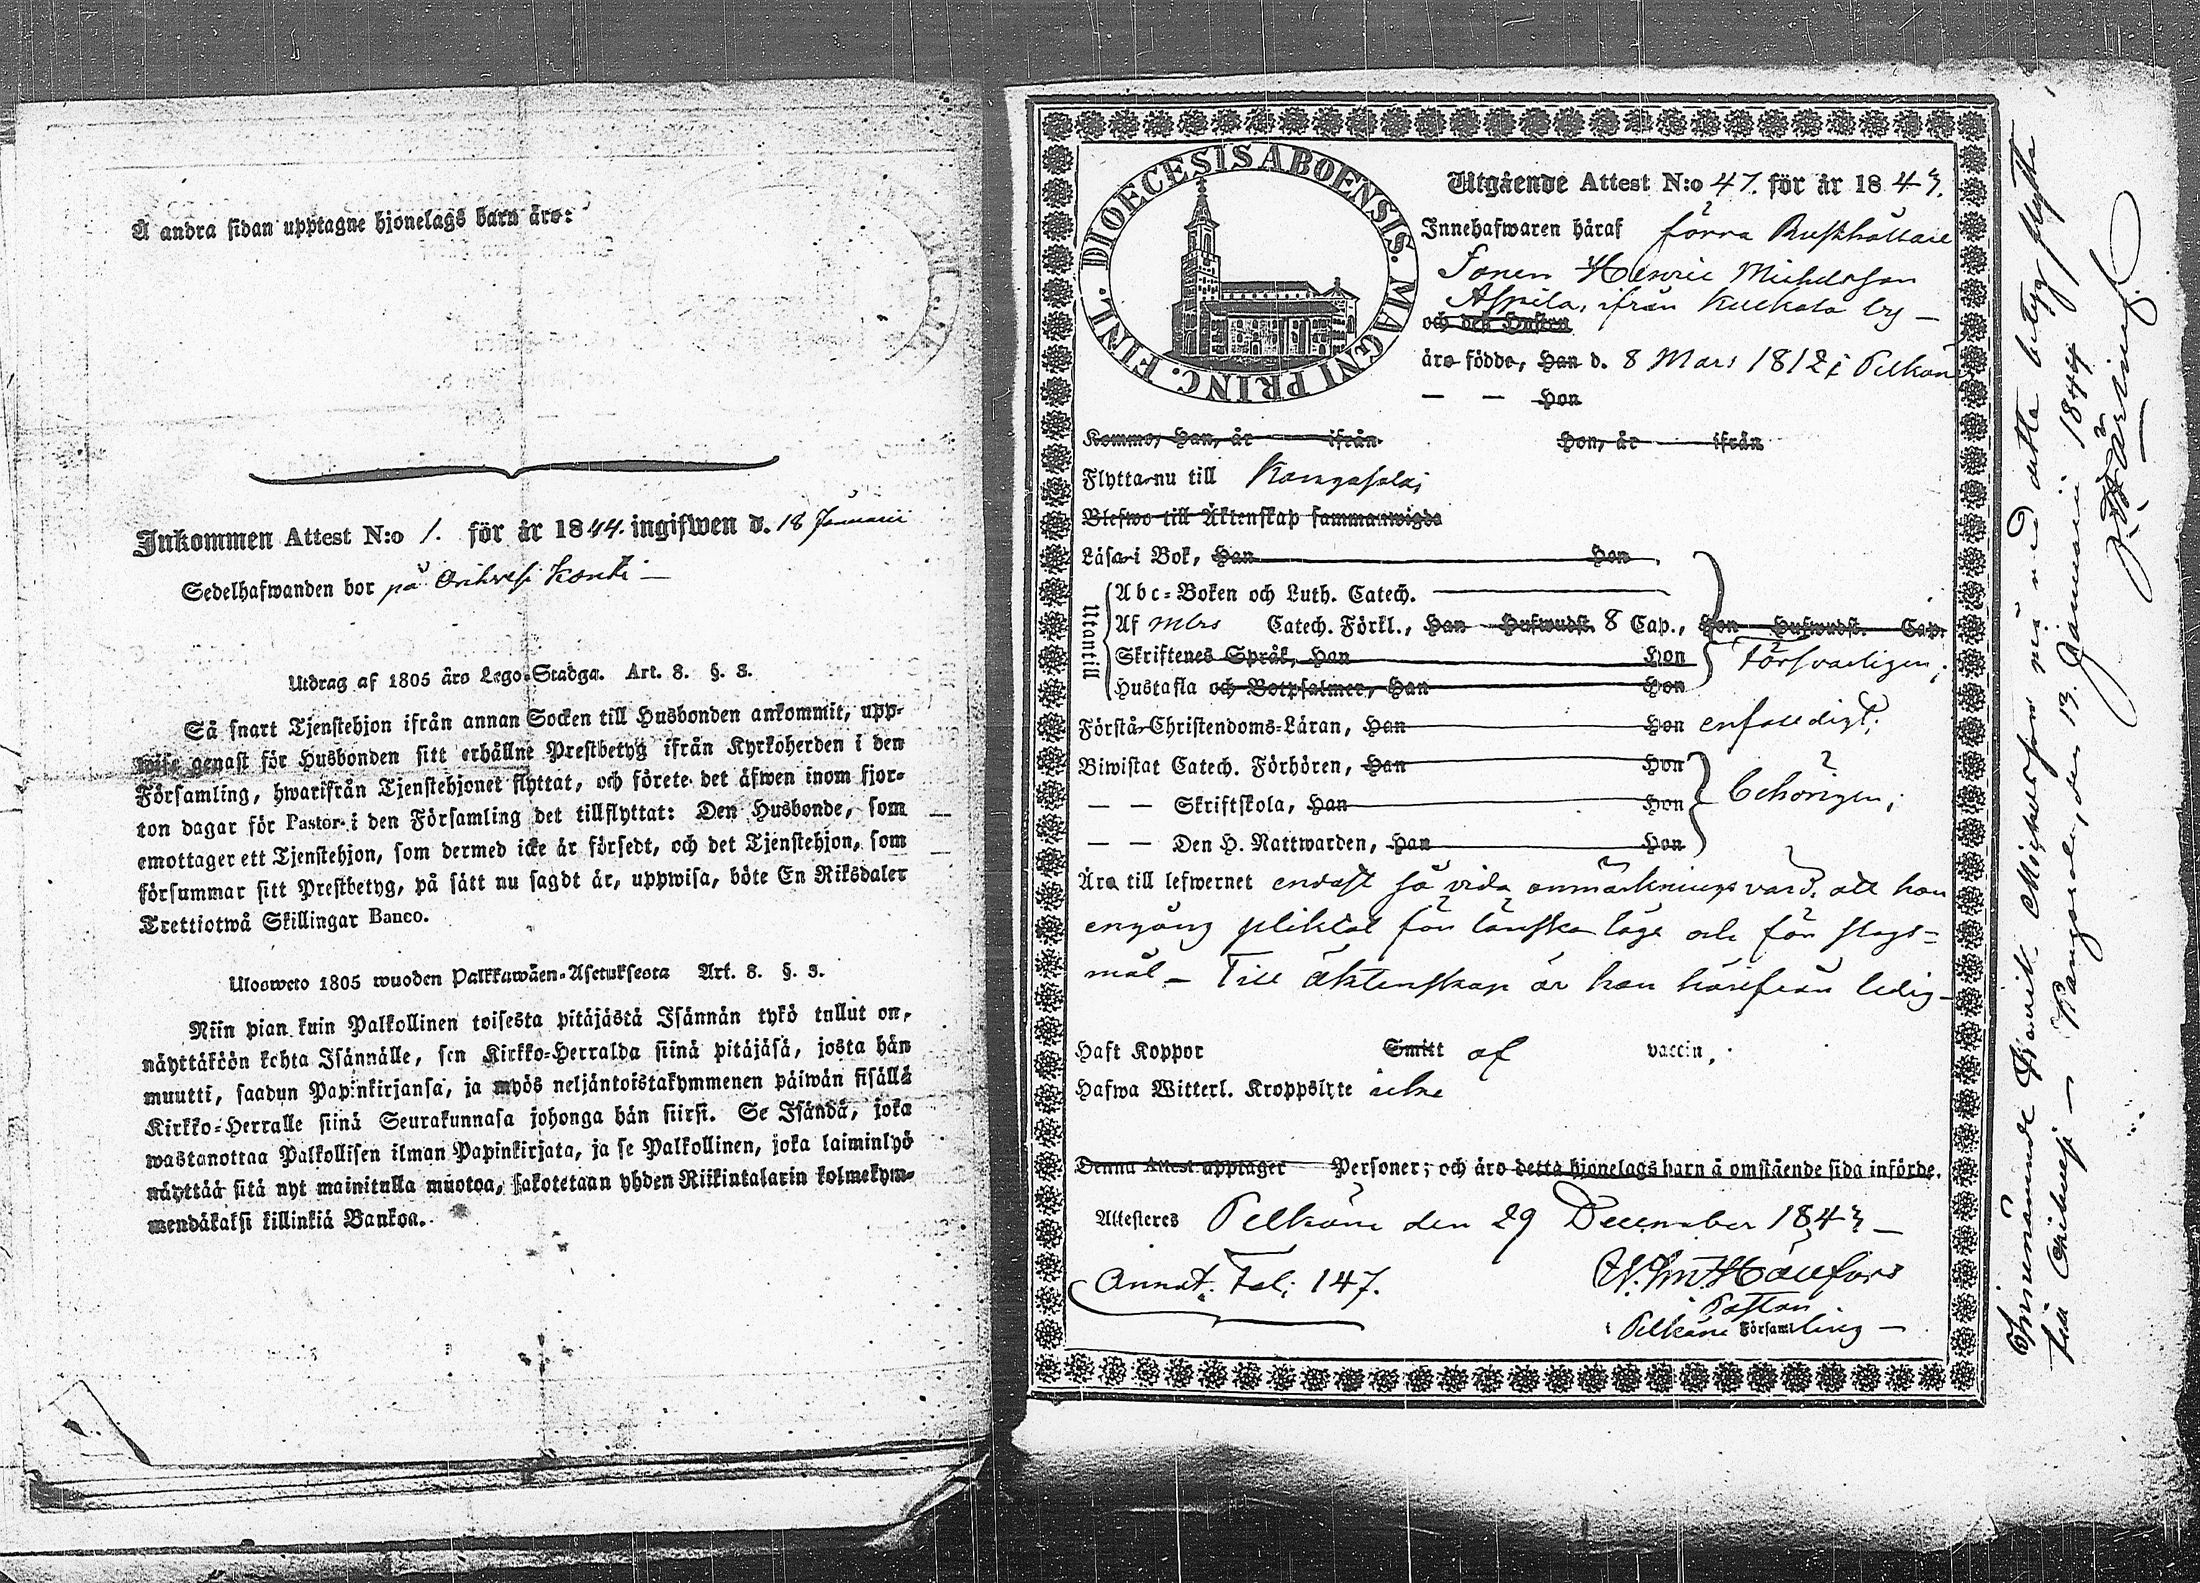 Å andra sidan upptagne hjonelags barn äro:
Inkommen Attest N:o 1. för år 1844. ingifwen d. 18 Januarii
Sedelhafwanden bor på Orihvesi Konti —
Utdrag af 1805 års Lego-Stadga. Art. 8. §. 3.
Så snart Tjenstehjon ifrån annan Socken till Husbonden ankommit, upp-
wise genast för Husbonden sitt erhållne Prestbetyg ifrån Kyrkoherden i den
Församling, hwarifrån Tjenstehjonet flyttat, och förete det äfwen inom fjor-
ton dagar för Pastor i den Församling det tillflyttat: Den Husbonde, som
emottager ett Tjenstehjon, som dermed icke är försedt, och det Tjenstehjon, som
försummar sitt Prestbetyg, på sätt nu sagdt är, uppwisa, böte En Riksdaler
Trettiotwå Skillingar Banco.
Ulosweto 1805 wuoden Palkkawäen-Asetuksesta Art. 8. §. 3.
Niin pian kuin Palkollinen toisesta pitäjästä Isännän tykö tullut on,
näyttäköön kohta Isännälle, sen Kirkko-Herralda siinä pitäjäsä, josta hän
muutti, saadun Papinkirjansa, ja myös neljäntoistakymmenen päiwän sisällä
Kirkko-Herralle siinä Seurakunnasa johonga hän siirsi. Se Isändä, joka
wastanottaa Palkollisen ilman Papinkirjata, ja se Palkollinen, joka laiminlyö
näyttää sitä nyt mainitulla muotoa, sakotetaan yhden Riikintalarin kolmekym-
mendäkaksi killinkiä Bankoa.
DIOECESIS ABOENSIS. MAGNI PRINC. FINL.
Utgående Attest N:o 47. för år 1843.
Innehafwaren häraf förra Rusthållare
Sonen Henric Michelsson
Aspila, ifrån Kuckola by —
och des Hustru
äro födde, Han d. 8 Mars 1812 i Pelkäne
— — Hon
Komme, Han, år ifrån Hon, år ifrån
Flytta nu till Kangasala;
Blefwo till Äktenskap sammanwigde
Läsa i Bok, Han Hon
Utantill
Abc-Boken och Luth. Catech.
Af Mbrs Catech. Förkl., Han Hufwudst. 8 Cap., Hon Hufwudst. Cap.
Skriftenes Språk, Han Hon försvarligen;
Hustafla och Botpsalmer, Han Hon
Förstår Christendoms-Läran, Han Hon enfaldigt;
Biwistat Catech. Förhören, Han Hon
— — Skriftskola, Han Hon behörigen;
— — Den H. Nattwarden, Han Hon
Äro till lefwernet endast så vida anmärkningsvärd, att han
engång pliktat för lönskaläge och för slags-
mål — Till äktenskap är han härifrån ledig —
Haft Koppor Smitt af vaccin,
Hafwa Witterl. Kroppslyte icke
Denna Attest upptager Personer; och äro detta hjonelags barn å omstående sida införde.
Attesteres Pelkäne den 29 December 1843 —
Annot. Fol; 147.
Pastor
i Pelkäne Församling —
Ofvannämnde Henrik Michelsson må med detta betyg flytta
till Orihvesi — Kangasala, den 13. Januarii 1844